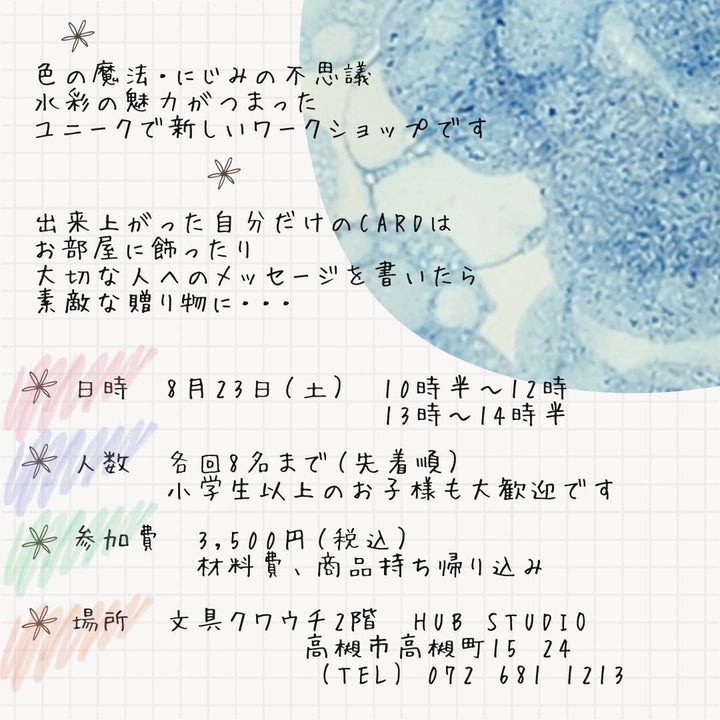 色の魔法・にじみの不思議
水彩の魅力がつまった
ユニークで新しいワークショップです
出来上がった自分だけのCARDは
お部屋に飾ったり
大切な人へのメッセージを書いたら
素敵な贈り物に・・・
日時 8月23日(土) 10時半〜12時
13時〜14時半
人数 各回8名まで(先着順)
小学生以上のお子様も大歓迎です
参加費 3,500円(税込)
材料費、商品持ち帰り込み
場所 文具クワウチ2階 HUB STUDIO
高槻市高槻町15 24
(TEL) 072 681 1213